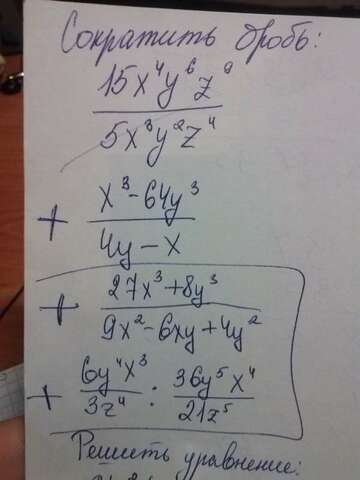 Сократить дробь:
15x⁴y⁶z⁹
5x³y²z⁴
+ x³-64y³
4y-x
+ 27x³+8y³
9x²-6xy+4y²
+ 6y⁴x³ : 36y⁵x⁴
3z⁴ 21z⁵
Решить уравнение: